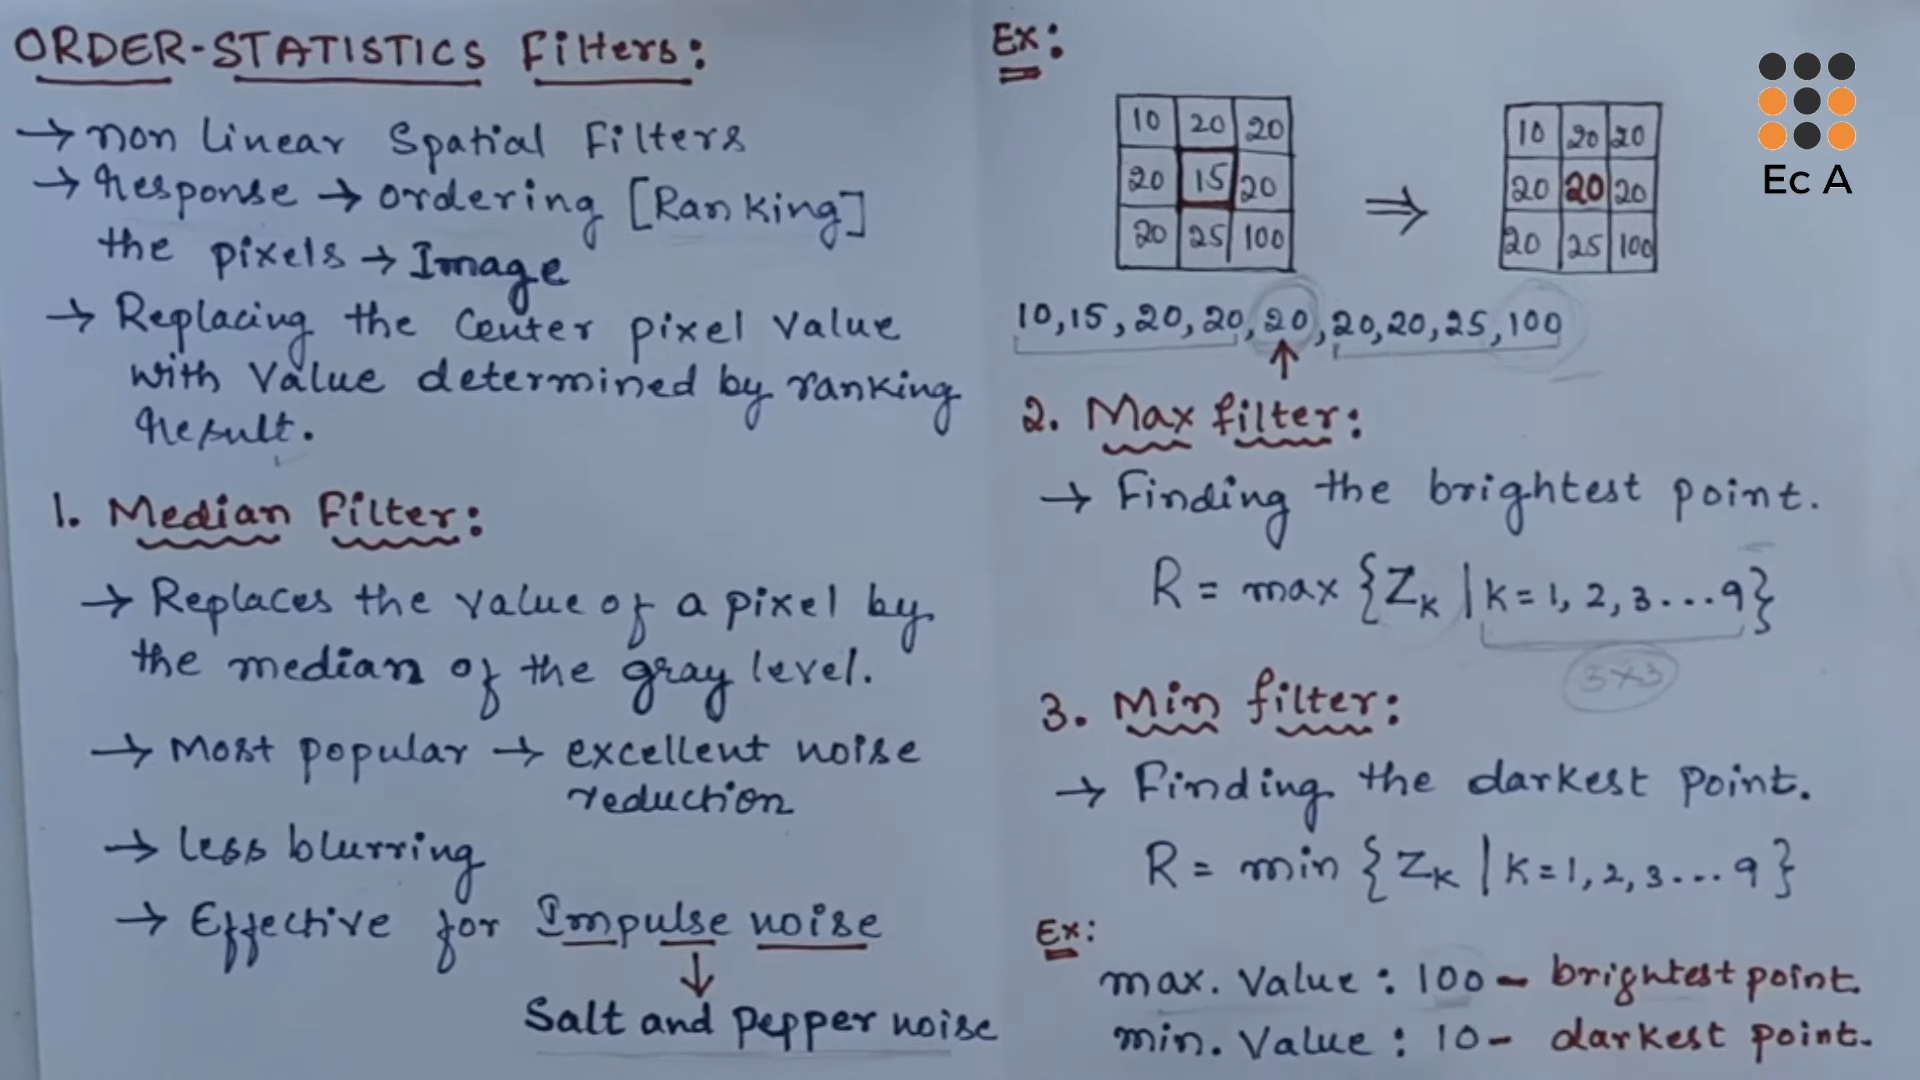 ORDER-STATISTICS Filters:
→ non Linear Spatial Filters
→ Response → ordering [Ranking]
the pixels → Image
→ Replacing the Center pixel Value
with Value determined by ranking
Result.
1. Median Filter:
→ Replaces the value of a pixel by
the median of the gray level.
→ Most popular → excellent noise
reduction
→ less blurring
→ Effective for Impulse noise
↓
Salt and Pepper noise
Ex:
10 20 20
20 15 20
20 25 100
⇒
10 20 20
20 20 20
20 25 100
10,15,20,20,20,20,20,25,100
↑
2. Max filter:
→ Finding the brightest point.
R = max {Zk | k=1, 2, 3...9}
3x3
3. Min filter:
→ Finding the darkest Point.
R = min {Zk | k=1,2,3...9}
Ex:
max. Value : 100 - brightest point.
min. Value : 10 - darkest point.
Ec A